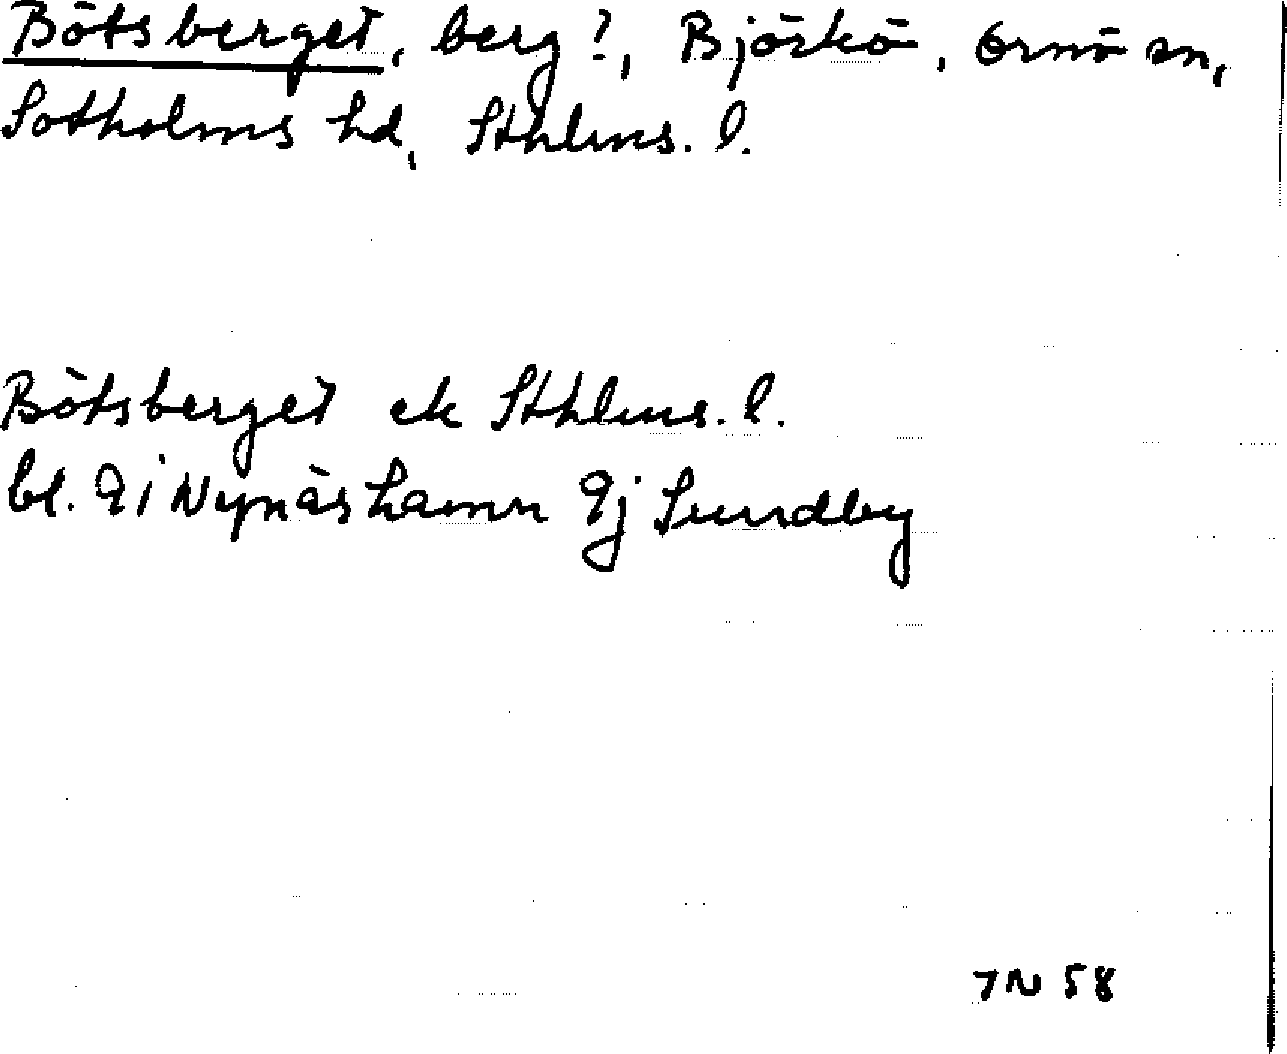 Bötsberget, berg?, Björkö, Ornö sn,
Sotholms hd, Sthlms. l.
Bötsberget ek Sthlms. l.
bl. 9i Nynäshamn 9j Sundby
JN 58